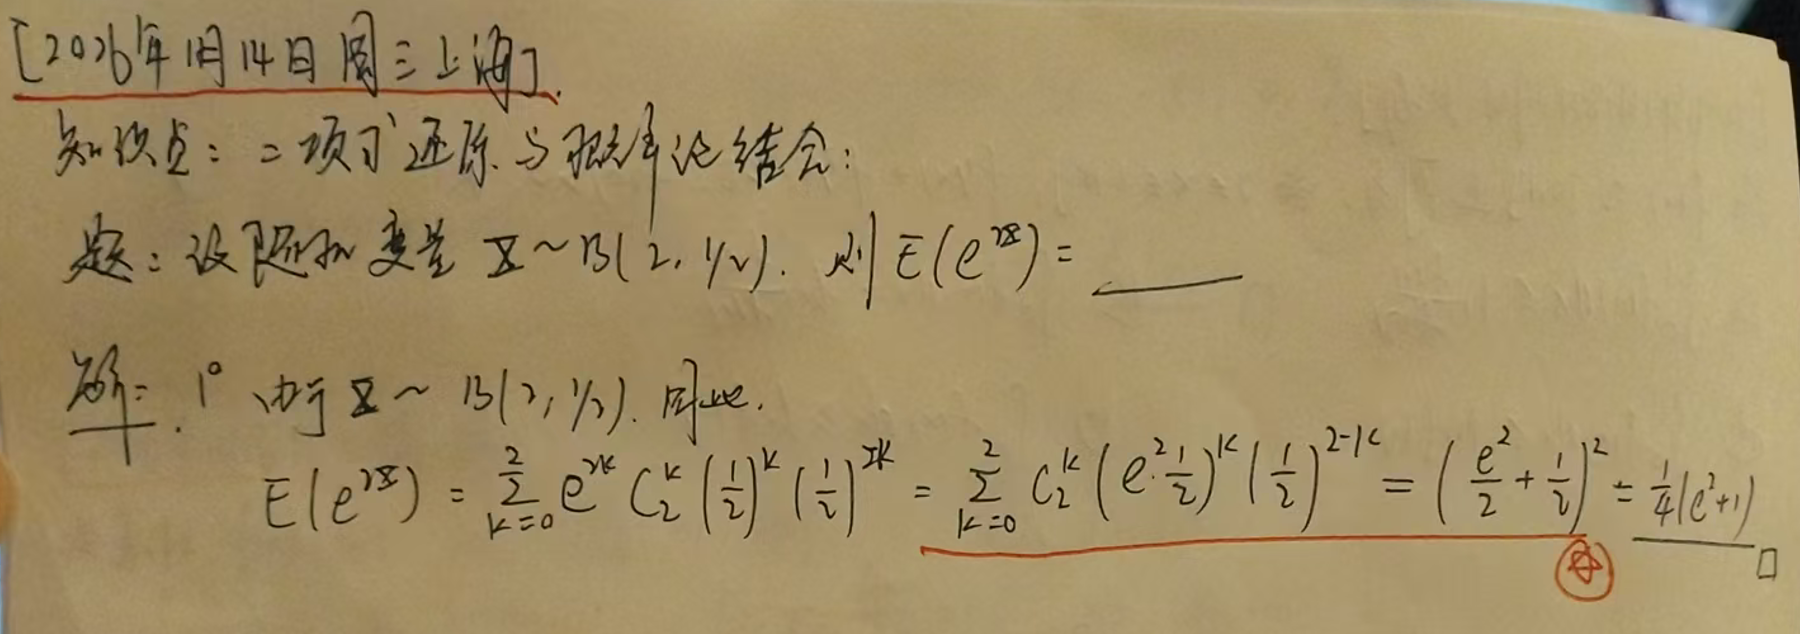 [2026年1月14日 周三 上海].
知识点：二项式还原与概率论结合：
题：设随机变量 X~B(2, 1/2). 则 E(e^{2X}) = ____
解: 1° 由于 X ~ B(2, 1/2). 因此.
E(e^{2X}) = \sum_{k=0}^{2} e^{2k} C_2^k (\frac{1}{2})^k (\frac{1}{2})^{2-k} = \sum_{k=0}^{2} C_2^k (e^2·\frac{1}{2})^k (\frac{1}{2})^{2-k} = (\frac{e^2}{2} + \frac{1}{2})^2 = \frac{1}{4}(e^2+1) □